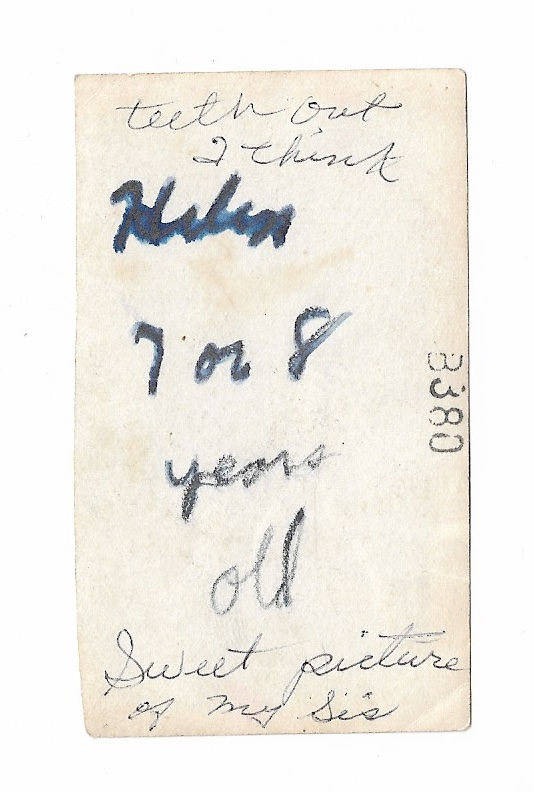 teeth out
I think
Helen
7 or 8
years
old
Sweet picture
of my Sis
3380